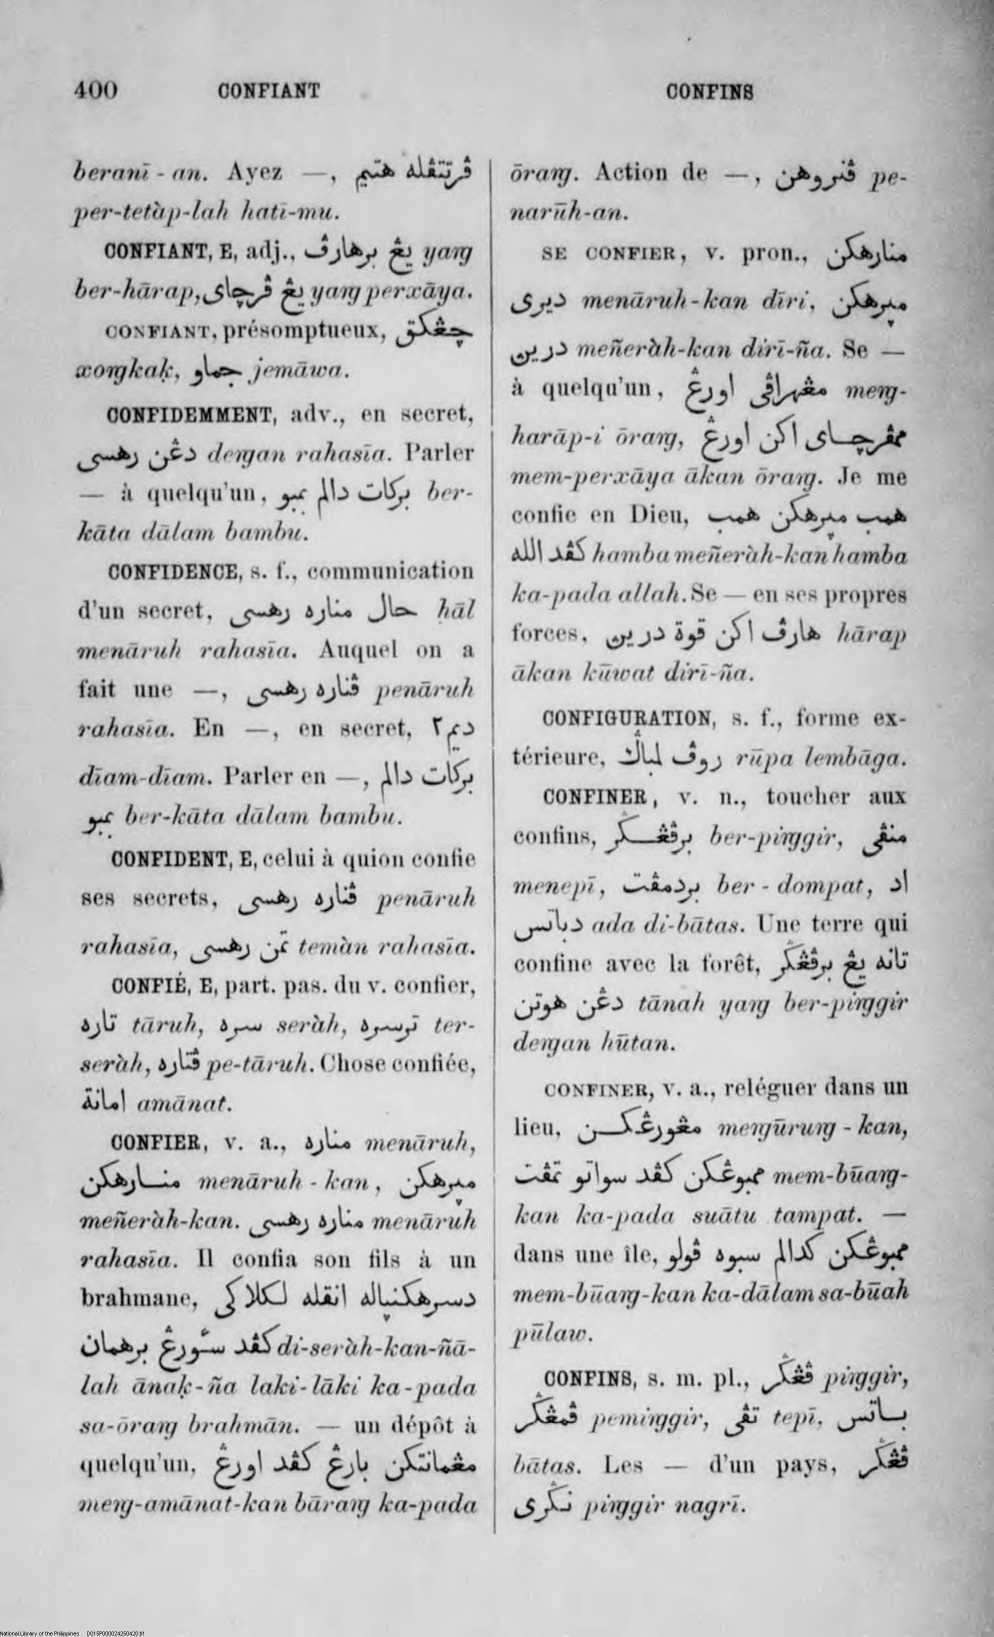 400 CONFIANT CONFINS
beranī-an. Ayez —, ڤرتتڤله هتيم
per-tetàp-lah hatī-mu.
CONFIANT, E, adj., يڠ برهارڤ yaƞg
ber-hārap, يڠ ڤرچاي yaƞg perxāya.
CONFIANT, présomptueux, چڠكق
xoƞgkaḳ, جماو jemāwa.
CONFIDEMMENT, adv., en secret,
دڠن رهسي deƞgan rahasīa. Parler
— à quelqu'un, بركات دالم بمبو ber-
kāta dālam bambu.
CONFIDENCE, s. f., communication
d'un secret, حال مناره رهسي hāl
menāruh rahasīa. Auquel on a
fait une —, ڤناره رهسي penāruh
rahasīa. En —, en secret, ديم٢
dīam-dīam. Parler en —, بركات دالم
بمبو ber-kāta dālam bambu.
CONFIDENT, E, celui à quion confie
ses secrets, ڤناره رهسي penāruh
rahasīa, تمن رهسي temàn rahasīa.
CONFIÉ, E, part. pas. du v. confier,
تاره tāruh, سره seràh, ترسره ter-
seràh, ڤتاره pe-tāruh. Chose confiée,
امانة amānat.
CONFIER, v. a., مناره menāruh,
منارهكن menāruh-kan, مڽرهكن
meñeràh-kan. مناره رهسي menāruh
rahasīa. Il confia son fils à un
brahmane, دسرهكنڽاله انقله لكلاكي
كڤد سئورڠ برهمان di-seràh-kan-ñā-
lah ānaḳ-ña laki-lāki ka-pada
sa-ōraƞg brahmān. — un dépôt à
quelqu'un, مڠمانتكن بارڠ كڤد اورڠ
meƞg-amānat-kan bāraƞg ka-pada
ōraƞg. Action de —, ڤنروهن pe-
narūh-an.
SE CONFIER, v. pron., منارهكن
ديري menāruh-kan dīri, مڽرهكن
درين meñeràh-kan dirī-ña. Se —
à quelqu'un, مڠهراڤي اورڠ meƞg-
harāp-i ōraƞg, ممڤرچاي اكن اورڠ
mem-perxāya ākan ōraƞg. Je me
confie en Dieu, همب مڽرهكن همب
كڤد الله hamba meñeràh-kan hamba
ka-pada allah. Se — en ses propres
forces, هارڤ اكن قوة درين hārap
ākan kūwat dirī-ña.
CONFIGURATION, s. f., forme ex-
térieure, روڤ لمباݢ rūpa lembāga.
CONFINER, v. n., toucher aux
confins, برڤڠݢر ber-piƞggir, منڤي
menepī, بردمڤت ber-dompat, اد
دباتس ada di-bātas. Une terre qui
confine avec la forêt, تانه يڠ برڤڠݢر
دڠن هوتن tānah yaƞg ber-piƞggir
deƞgan hūtan.
CONFINER, v. a., reléguer dans un
lieu, مڠورڠكن meƞgūruƞg-kan,
ممبوڠكن كڤد سواتو تمڤت mem-būaƞg-
kan ka-pada suātu tampat. —
dans une île, ممبوڠكن كدالم سبوه ڤولو
mem-būaƞg-kan ka-dālam sa-būah
pūlaw.
CONFINS, s. m. pl., ڤڠݢر piƞggir,
ڤمڠݢر pemiƞggir, تڤي tepī, باتس
bātas. Les — d'un pays, ڤڠݢر
نݢري piƞggir nagrī.
National Library of the Philippines